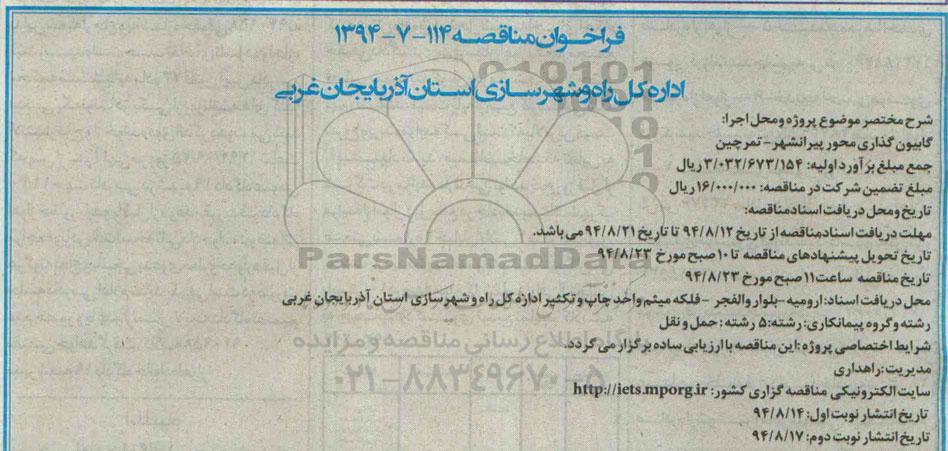 فراخوان مناقصه ۱۱۴-۷-۱۳۹۴
اداره کل راه وشهرسازی استان آذربایجان غربی
شرح مختصر موضوع پروژه ومحل اجرا:
گابیون گذاری محور پیرانشهر- تمرچین
جمع مبلغ برآورد اولیه: ۳/۰۳۲/۶۷۳/۱۵۴ ریال
مبلغ تضمین شرکت در مناقصه: ۱۶/۰۰۰/۰۰۰ ریال
تاریخ ومحل دریافت اسنادمناقصه:
مهلت دریافت اسنادمناقصه از تاریخ ۹۴/۸/۱۲ تا تاریخ ۹۴/۸/۲۱ می باشد.
تاریخ تحویل پیشنهادهای مناقصه تا ۱۰ صبح مورخ ۹۴/۸/۲۳
تاریخ مناقصه ساعت ۱۱ صبح مورخ ۹۴/۸/۲۳
محل دریافت اسناد: ارومیه-بلوار والفجر -فلکه میثم واحد چاپ و تکثیر اداره کل راه و شهرسازی استان آذربایجان غربی
رشته وگروه پیمانکاری: رشته: ۵ رشته : حمل و نقل
شرایط اختصاصی پروژه :این مناقصه با ارزیابی ساده برگزار می گردد.
مدیریت: راهداری
سایت الکترونیکی مناقصه گزاری کشور: http://iets.mporg.ir
تاریخ انتشار نوبت اول: ۹۴/۸/۱۴
تاریخ انتشار نوبت دوم: ۹۴/۸/۱۷
ParsNamadData
پایگاه اطلاع رسانی مناقصه و مزایده
۰۲۱-۸۸۳۴۹۶۷۰-۵